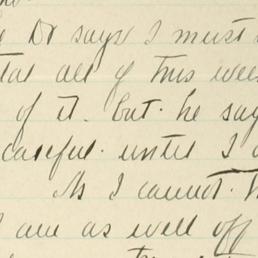 Dr says I must
all of this wee
of it. but. he say
careful. until I
As I cannot.
I am as well off